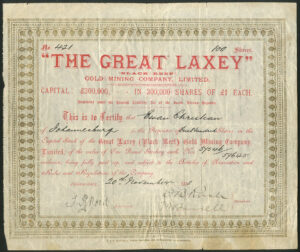 No 421 100 Shares.
"THE GREAT LAXEY"
"BLACK REEF"
GOLD MINING COMPANY, LIMITED.
CAPITAL £300,000, IN 300,000 SHARES OF £1 EACH.
This is to Certify that Ewan Christian
of Johannesburg is the Proprietor One Hundred Shares in the
Capital Stock of the Great Laxey (Black Reef) Gold Mining Company,
Limited, of the value of One Pound Sterling each, Nos
inclusive, being fully paid up, and subject to the Articles of Association and
Rules and Regulations of this Company.
20th November